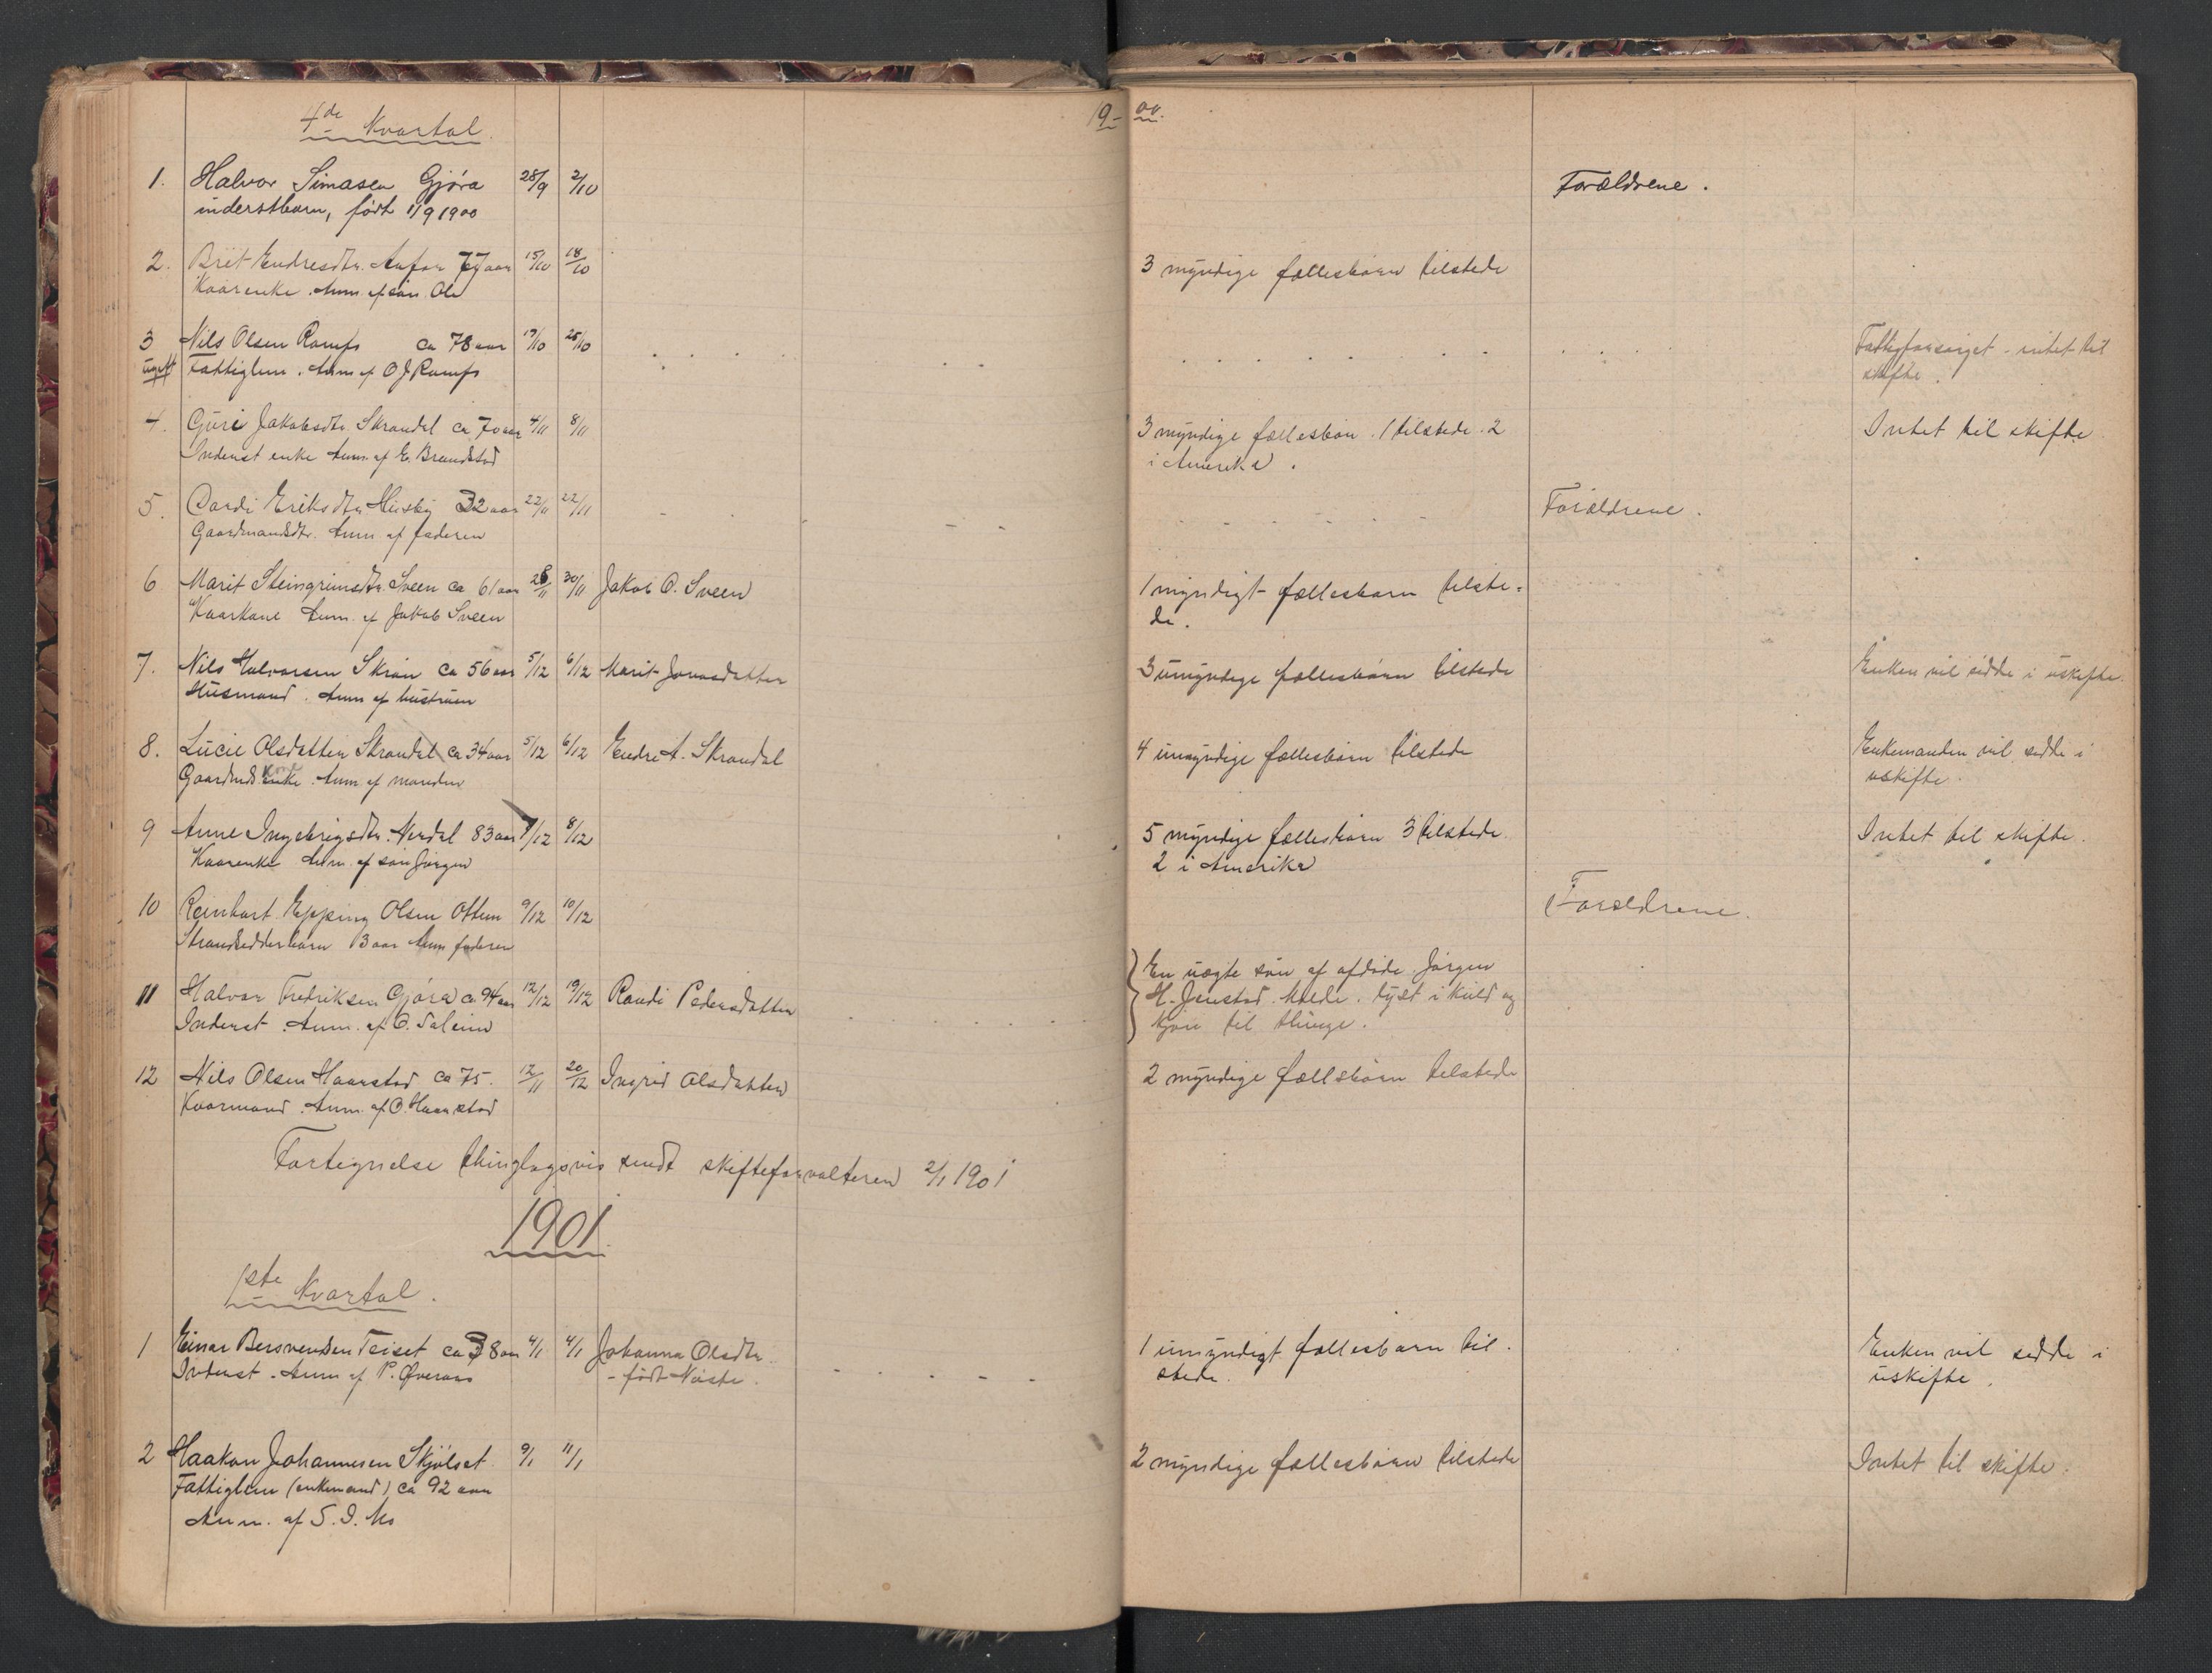 4de Kvartal.
19-00.
1. Halvor Simasen Gjøra 28/9 2/10 Forældrene.
inderstbarn, født 1/9 1900
2. Brit Endresdtr. 77 aar 15/10 18/10 3 myndige fællesbørn tilstede
Kaarenke. Anm af søn Ole
3 Nils Olsen Romfo ca 78 aar 19/10 25/10 Fattigforsørget - intet til
ugift Fattiglem. Anm af O J Romfo skifte.
4. Guri Jakobsdtr. Skrondal ca 70 aar 4/11 8/11 3 myndige fællesbørn. 1 tilstede. 2 Intet til skifte
Inderst enke Anm. af E. Brandstad i Amerika.
5. Dordi Eriksdtr. Husby 32 aar 22/11 22/11 Forældrene.
Gaardmandsdtr. Anm. af faderen
6 Marit Steingrimsdtr. Sveen ca 61 aar 28/11 30/11 Jakob O. Sveen 1 myndigt fællesbarn tilste-
Kaarkone Anm. af Jakob Sveen de.
7. Nils Halvorsen ca 56 aar 5/12 6/12 Marit Jonasdatter 3 umyndige fællesbørn tilstede Enken vil sidde i uskifte.
Husmand. Anm af hustruen
8. Lucie Olsdatter Skrondal ca 34 aar 5/12 6/12 Endre A. Skrondal 4 umyndige fællesbørn tilstede Enkemanden vil sidde i
Gaardmds kone. Anm af manden uskifte.
9 Anne Ingebrigsdtr. Nerdal 83 aar 7/12 8/12 5 myndige fællesbørn 3 tilstede. Intet til skifte.
Kaarenke Anm. af søn Jørgen 2 i Amerika
10 Reinhart Epping Olsen Ottem 9/12 10/12 Forældrene.
Strandsidderbarn 3 aar Anm faderen
11 Halvor Fredriksen Gjøra ca 94 aar 12/12 19/12 Randi Pedersdatter En uægte søn af afdøde Jørgen
Inderst. Anm. af O. H. Jenstad. Molde. lyst i kuld og
kjøn til thinge.
12 Nils Olsen Haarstad ca 75. 12/11 20/12 Ingrid Olsdatter 2 myndige fællsbørn tilstede
Kaarmand. Anm. af O. Haarstad
Fortegnelse thinglagsvis sendt skifteforvalteren 2/1 1901
1901.
1ste Kvartal.
1 Einar Bersvendsen Teiset ca 38 aar 4/1 4/1 Johanna Olsdtr. 1 umyndigt fællesbarn til- Enken vil sidde i
Inderst. Anm af P. Øveraas - født Næste. stede. uskifte.
2 Haakon Johannesen Skjølset 9/1 11/1 2 myndige fællesbørn tilstede Intet til skifte.
Fattiglem (enkemand) ca 92 aar
Anm. af S. I. Mo